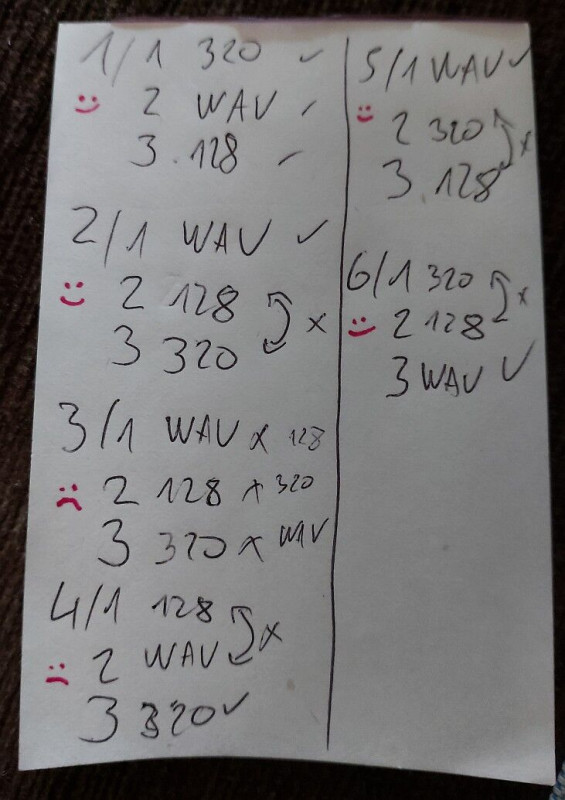 1/1 320 ✓
2 WAV ✓
3.128 ✓
2/1 WAV ✓
2 128
3 320 x
3/1 WAV x 128
2 128 x 320
3 320 x WAV
4/1 128
2 WAV x
3 320 ✓
5/1 WAV ✓
2 320 x
3.128
6/1 320 x
2 128
3 WAV ✓